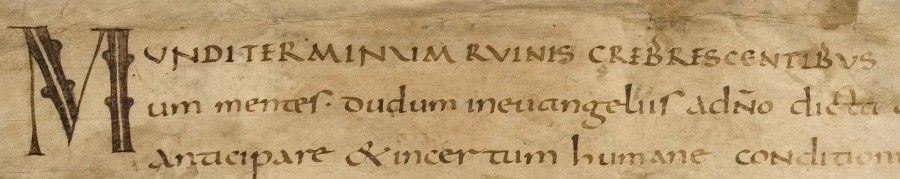 MUNDI TERMINUM RUINIS CREBRESCENTIBUS
um mentes. dudum ineuangeliis adnō dicta
anticipare & incertum humane condition